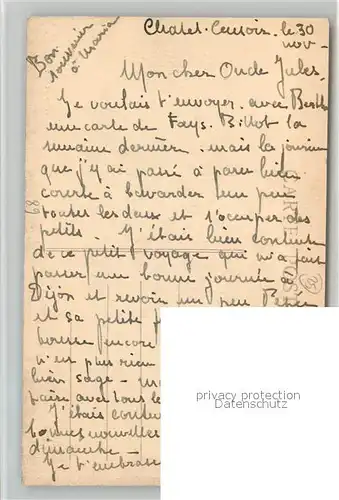 Chatel-Censoir, le 30
nov -
Bon
souvenir
à Maria
Mon cher Oncle Jules,
Je voulais t'envoyer avec Berthe
une carte de Fays-Billot la
semaine dernière, mais la journée
que j'y ai passé a paru bien
courte à bavarder un peu
toutes les deux et s'occuper des
petits. J'étais bien contente
de ce petit voyage qui m'a fait
passer une bonne journée à
Dijon et revoir un peu
et sa petite
encore
n'est plus rien
bien sage -
avec tous le
J'étais conten
bonnes nouvelles
dimanche -
Je t'embrasse
89
privacy protection
Datenschutz